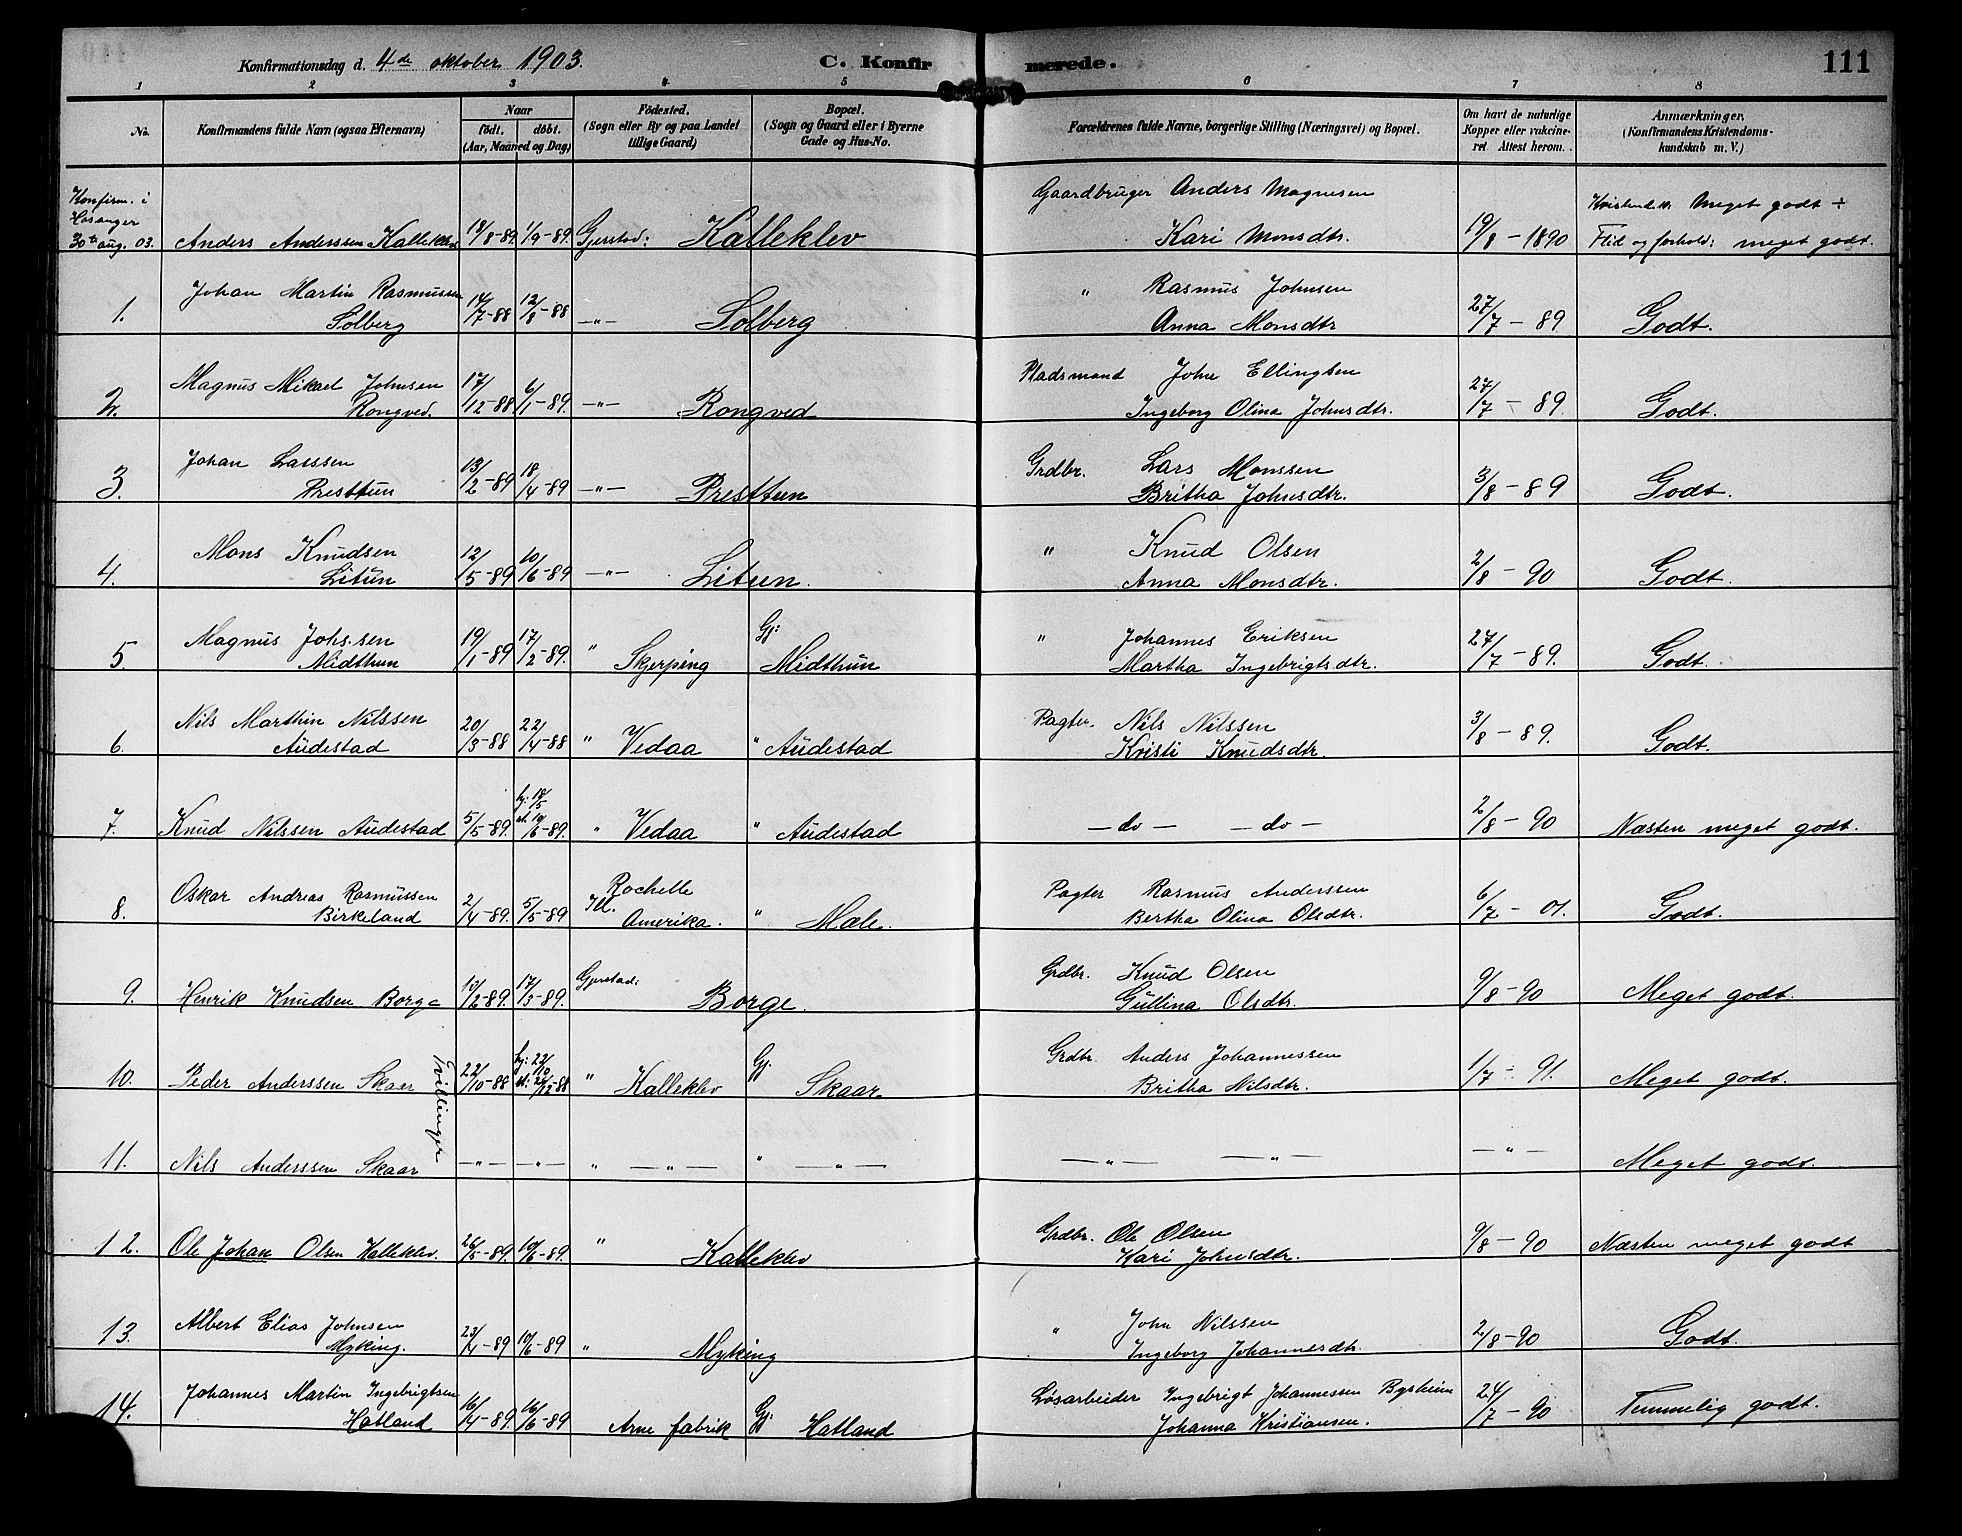 Konfirmationsdag d. 4de oktober 1903. C. Konfirmerede. 111
1 2 3 4 5 6 7 8
No. Konfirmandens fulde Navn (ogsaa Efternavn) Naar födt. döbt. (Aar, Maaned og Dag) Födested. (Sogn eller By og paa Landet tillige Gaard) Bopæl. (Sogn og Gaard eller i Byerne Gade og Hus-No. Forældrenes fulde Navne, borgerlige Stilling (Næringsvei) og Bopæl. Om havt de naturlige Kopper eller vakcineret Attest herom. Anmærkninger. (Konfirmandens Kristendomskundskab m. V.)
Konfirm. i Gaardbruger Anders Magnesen Kristend.: Meget godt ÷
Hosanger
30te aug. 03. Anders Anderssen Kalleklev 18/8-89. 1/9-89. Gjerstad: Kalleklev Kari Monsdtr. 19/8-1890 Flid og forhold: meget godt.
Johan Martin Rasmussen " Rasmus Johnsen
1. Solberg 14/7-88 12/8-88 -"- Solberg Anna Monsdtr 27/7-89 Godt.
Magnus Mikael Johnsen Pladsmand John Ellingsen
2. Rongved. 17/12-88 6/1-89. -"- Rongved Ingeborg Olina Johnsdtr. 27/7-89 Godt.
Johan Larssen Grdbr. Lars Monssen
3. Presttun 13/2-89 18/4-89 -"- Presttun Britha Johnsdtr. 3/8-89 Godt.
Mons Knudsen " Knud Olsen
4. Litun 12/5-89 10/6-89 -"- Litun. Anna Monsdtr. 2/8-90 Godt.
Magnus Johs.sen Gj: " Johannes Eriksen
5 Midthun 19/1-89 17/2-89. " Skjerping Midthun Martha Ingebrigtsdtr. 27/7-89. Godt.
Nils Marthin Nilssen Pagter. Nils Nilssen
6. Audestad 20/3-88 22/4-88 " Vedaa " Audestad Kristi Knudsdtr. 3/8-89. Godt.
7. Knud Nilssen Audestad 5/5-89. hj: 18/5 st. 10/6-89. " Vedaa " Audestad -do- -do- 2/8-90 Næsten meget godt.
Oskar Andreas Rasmussen Rochelle Pagter Rasmus Anderssen
8. Birkeland 2/4-89. 5/5-89 Ill. Amerika. " Male. Bertha Olina Olsdtr. 6/7-01. Godt.
Gjerstad: Grdbr. Knud Olsen
9. Henrik Knudsen Borge 10/2-89. 17/3-89. Borge. Gullina Olsdtr. 9/8-90 Meget godt.
Grdbr. Anders Johannessen
10. Peder Anderssen Skaar Tvillinger 22/10-88 hj: 22/10 st: 26/12-88 " Kalleklev Gj. Skaar Britha Nilsdtr. 1/7-91. Meget godt.
11. Nils Anderssen Skaar -"- -"- " -"- " -"- -"- -"- -"- Meget godt.
Grdbr. Ole Olsen
12. Ole Johan Olsen Kalleklev. 26/5-89. 10/6-89. " Kalleklev Kari Johnsdtr. 9/8-90 Næsten meget godt
Albert Elias Johnsen " John Nilssen
13. Myking. 23/4-89 10/6-89 " Myking Ingeborg Johannesdtr. 2/8-90 Godt.
Johannes Martin Ingebrigtsen Løsarbeider Ingebrigt Johannessen Bysheim
14. Hatland 16/4-89. 16/6-89 Arne fabrik Gj: Hatland Johanna Kristiansen. 24/7-90 Temmelig godt.